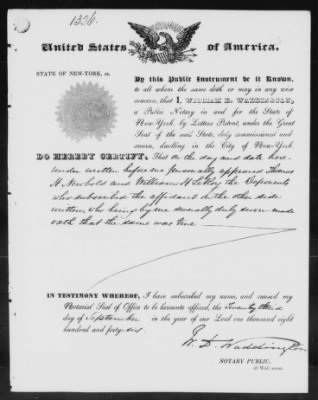 1326.
United States of America.
STATE OF NEW-YORK, ss.
By this Public Instrument be it Known,
to all whom the same doth or may in any wise
concern, that I, WILLIAM D. WADDINGTON,
a Public Notary in and for the State of
New-York, by Letters Patent, under the Great
Seal of the said State, duly commissioned and
sworn, dwelling in the City of New-York
DO HEREBY CERTIFY, That on the day and date here-
under written before me personally appeared Thomas
H Newbold and William H LeRoy the Deponents
who subscribed the affidavit on the other side
written, who being by me severally duly sworn made
oath that the same was true
IN TESTIMONY WHEREOF, I have subscribed my name, and caused my
Notarial Seal of Office to be hereunto affixed, the Twenty third
day of September in the year of our Lord one thousand eight
hundred and forty-six.
W. D. Waddington
NOTARY PUBLIC,
Wall street.